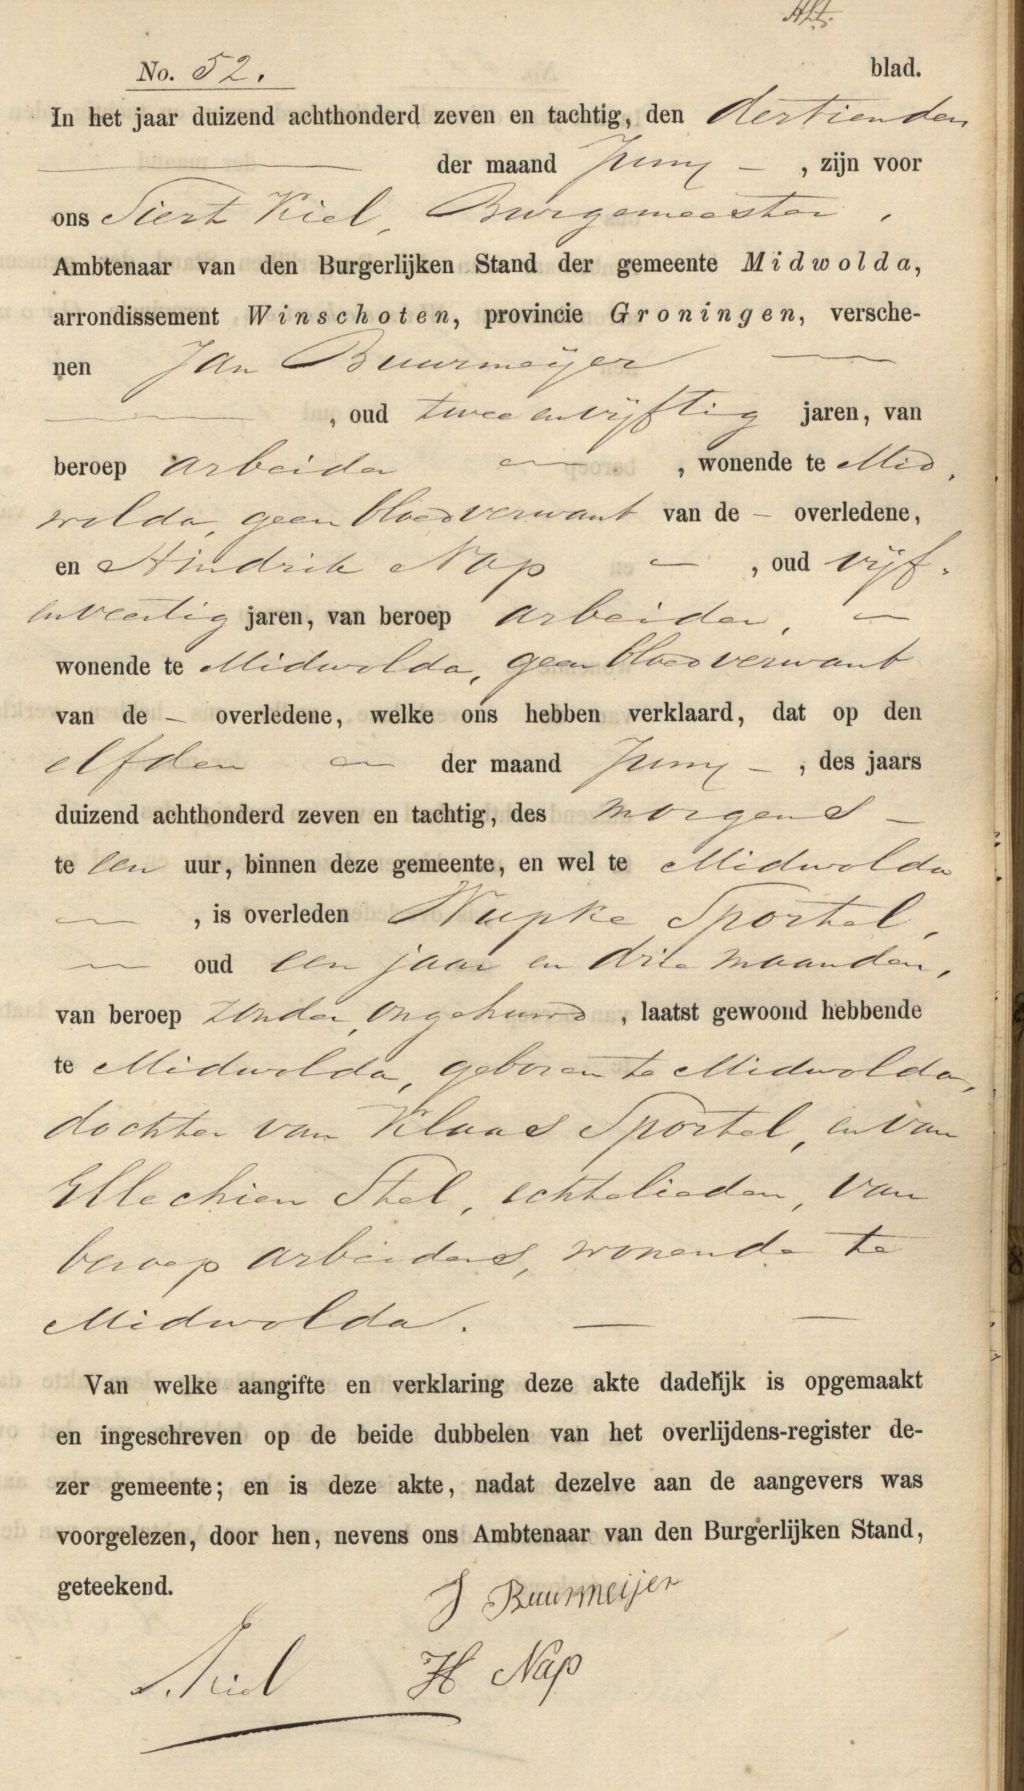 No. 52. blad.
In het jaar duizend achthonderd zeven en tachtig, den dertienden
der maand Juny –, zijn voor
ons Siert Kiel, Burgemeester,
Ambtenaar van den Burgerlijken Stand der gemeente Midwolda,
arrondissement Winschoten, provincie Groningen, versche-
nen Jan Buurmeijer —
—, oud twee en vijftig jaren, van
beroep arbeider —, wonende te Mid-
wolda, geen bloedverwant van de – overledene,
en Hindrik Nap —, oud vijf-
enveertig jaren, van beroep arbeider, —
wonende te Midwolda, geen bloedverwant
van de – overledene, welke ons hebben verklaard, dat op den
elfden — der maand Juny –, des jaars
duizend achthonderd zeven en tachtig, des morgens –
te een uur, binnen deze gemeente, en wel te Midwolda
—, is overleden Wupke Sportel,
— oud een jaar en drie maanden,
van beroep zonder, ongehuwd, laatst gewoond hebbende
te Midwolda, geboren te Midwolda,
dochter van Klaas Sportel, en van
Ellechien Stel, echtelieden, van
beroep arbeiders, wonende te
Midwolda. — —
Van welke aangifte en verklaring deze akte dadelijk is opgemaakt
en ingeschreven op de beide dubbelen van het overlijdens-register de-
zer gemeente; en is deze akte, nadat dezelve aan de aangevers was
voorgelezen, door hen, nevens ons Ambtenaar van den Burgerlijken Stand,
geteekend.
J Buurmeijer
S. Kiel H Nap